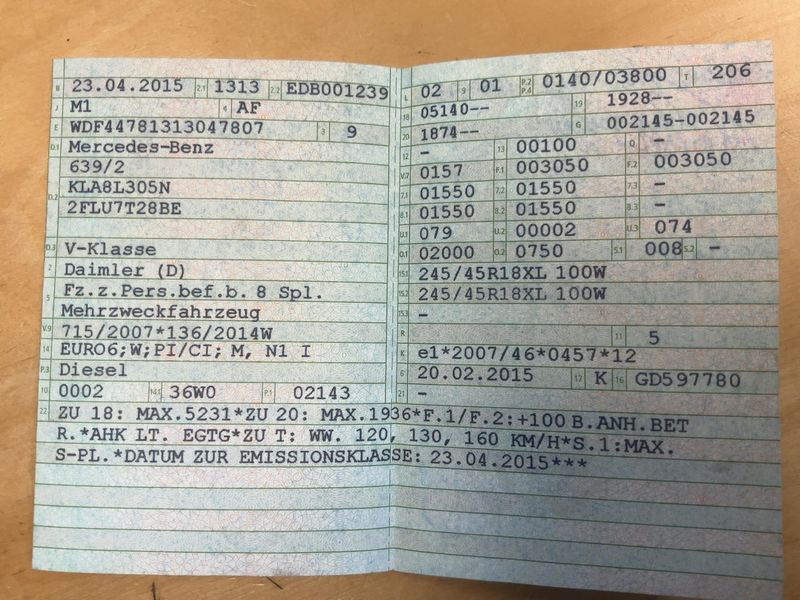 B 23.04.2015 2.1 1313 2.2 EDB001239
J M1 4 AF
E WDF44781313047807 3 9
D.1 Mercedes-Benz
639/2
D.2 KLA8L305N
2FLU7T28BE
D.3 V-Klasse
2 Daimler (D)
5 Fz.z.Pers.bef.b. 8 Spl.
Mehrzweckfahrzeug
V.9 715/2007*136/2014W
14 EURO6;W;PI/CI; M, N1 I
P.3 Diesel
10 0002 14.1 36W0 P.1 02143
L 02 9 01 P.2 P.4 0140/03800 T 206
18 05140-- 19 1928--
20 1874-- G 002145-002145
12 - 13 00100 Q -
V.7 0157 F.1 003050 F.2 003050
7.1 01550 7.2 01550 7.3 -
8.1 01550 8.2 01550 8.3 -
U.1 079 U.2 00002 U.3 074
O.1 02000 O.2 0750 S.1 008 S.2 -
15.1 245/45R18XL 100W
15.2 245/45R18XL 100W
15.3 -
R 11 5
K e1*2007/46*0457*12
6 20.02.2015 17 K 16 GD597780
21 -
22 ZU 18: MAX.5231*ZU 20: MAX.1936*F.1/F.2:+100 B.ANH.BET
R.*AHK LT. EGTG*ZU T: WW. 120, 130, 160 KM/H*S.1:MAX.
S-PL.*DATUM ZUR EMISSIONSKLASSE: 23.04.2015***